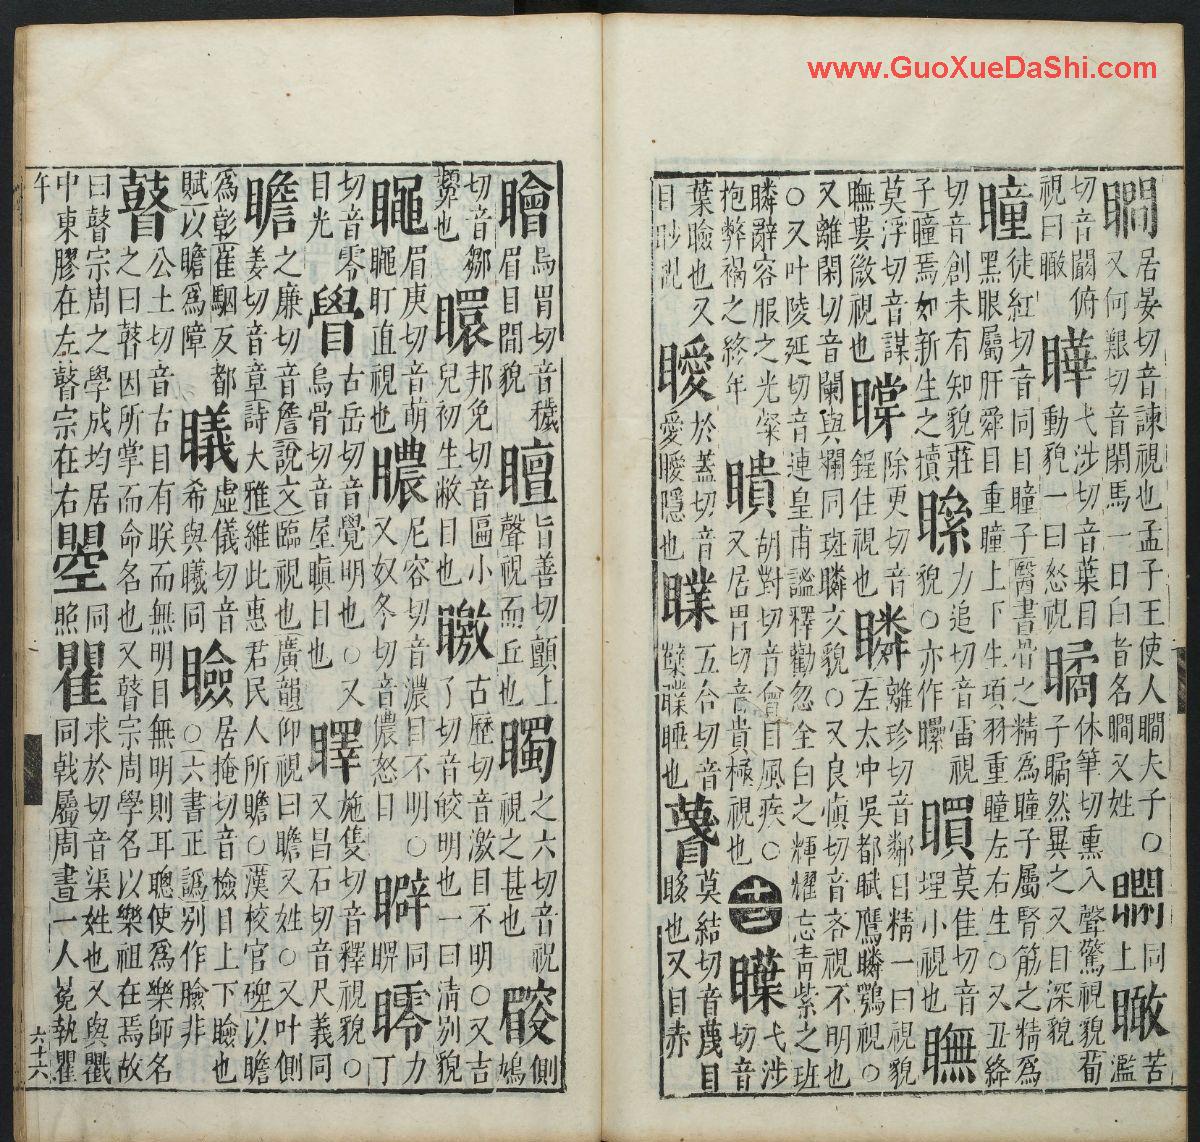 www.GuoXueDaShi.com
瞯居晏切音諫視也孟子王使人瞯夫子○又何艱切音閑馬一目白者名瞯又姓 同上瞰苦濫
切音闞俯視曰瞰瞱弋涉切音葉目動貌一曰怒視瞲休筆切熏入聲驚視貌荀子瞲然異之又目深貌
瞳徒紅切音同目瞳子醫書骨之精為瞳子屬腎筋之精為黑眼屬肝舜目重瞳上下生項羽重瞳左右生○又丑絳
切音創未有知貌莊子瞳焉如新生之犢 力追切音雷視貌○亦作 莫佳切音埋小視也瞴
莫浮切音謀瞴婁微視也瞠除更切音鋥住視也瞵離珍切音鄰目精一曰視貌左太冲吳都賦鷹瞵鶚視○
又離閑切音闌與斕同斑瞵文貌○又良慎切音吝視不明也○又叶陵延切音連皇甫謐釋勸忽全白之輝耀忘青紫之班
瞵辭容服之光粲抱弊褐之終年瞶胡對切音會目風疾○又居胃切音貴極視也十三 弋涉切音
葉瞼也又目眇視瞹於蓋切音愛瞹隱也 五合切音 睡也 莫結切音蔑目眵也又目赤
瞺烏胃切音穢眉目間貌 旨善切顫上聲視而止也 之六切音祝視之甚也 側鳩
切音鄒 也 邦免切音匾小兒初生蔽目也 古歷切音激目不明○又吉了切音皎明也一曰清別貌
眉庚切音萌 盯直視也 尼容切音濃目不明○又奴冬切音儂怒目 同 力丁
切音零目光 古岳切音覺明也○又烏骨切音屋瞋目也 施隻切音釋視貌○又昌石切音尺義同
瞻之廉切音詹說文臨視也廣韻仰視曰瞻又姓○又叶側姜切音章詩大雅維此惠君民人所瞻○漢校官碑以瞻
為彰崔駰反都賦以瞻為障 虛儀切音希與曦同瞼居掩切音檢目上下瞼也○六書正譌別作臉非
瞽公土切音古目有眹而無明目無明則耳聰使為樂師名之曰瞽因所掌而命名也又瞽宗周學名以樂祖在焉故
曰瞽宗周之學成均居中東膠在左瞽宗在右曌同照瞿求於切音渠姓也又與戵同戟屬周書一人冕執瞿
午
六十六